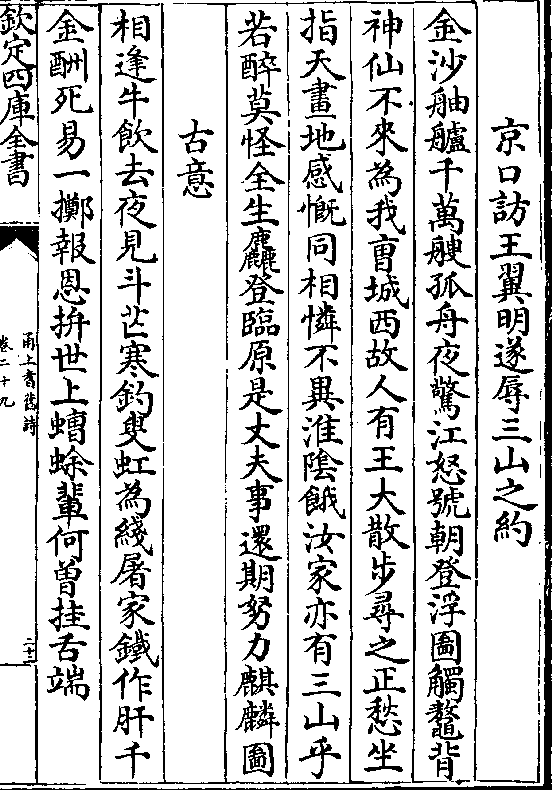 京口訪王翼明遂辱三山之約
金沙舳艫千萬艘孤舟夜驚江怒號朝登浮圖觸鼇背
神仙不來為我曹城西故人有王大散步尋之正愁坐
指天畫地感慨同相憐不異淮陰餓汝家亦有三山乎
若醉莫怪全生麤登臨原是丈夫事還期努力麒麟圖
古意
相逢牛飲去夜見斗芒寒釣叟虹為綫屠家鐵作肝千
金酬死易一擲報恩拚世上蠐螬輩何曾挂舌端
欽定四庫全書
甬上耆舊詩
卷二十九